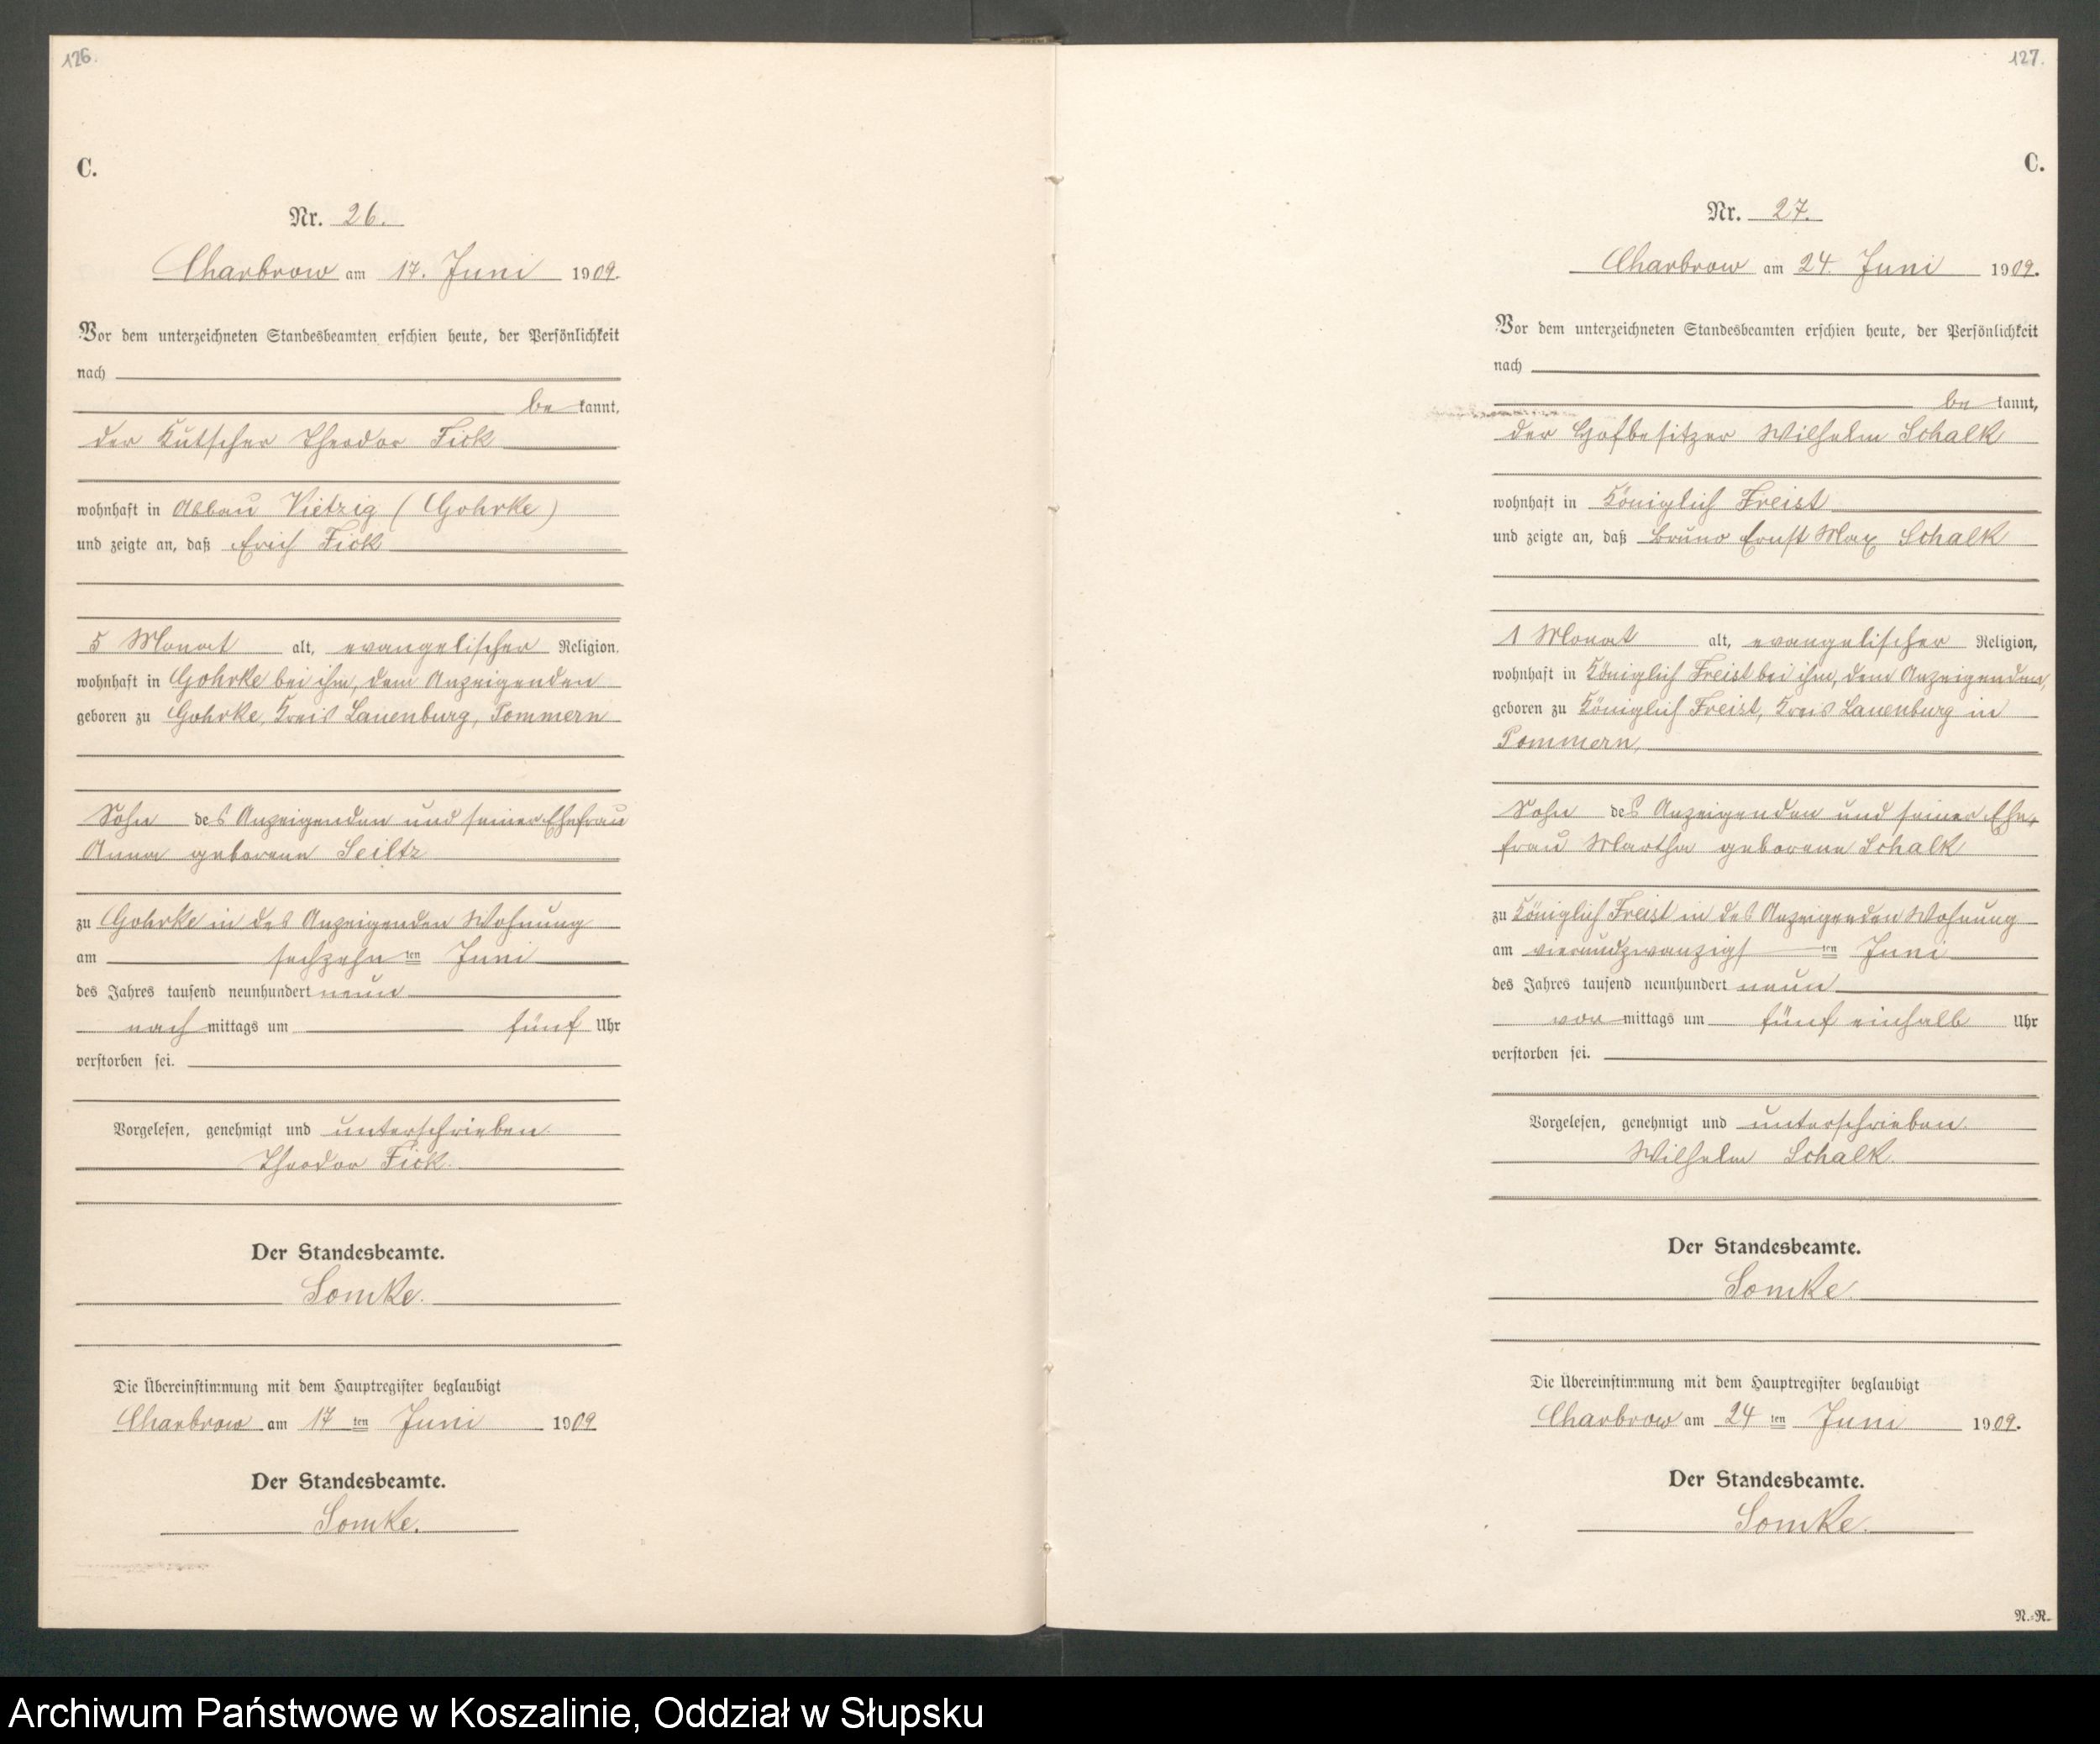 126.
C.
Nr. 26.
Charbrow am 17. Juni 1909.
Vor dem unterzeichneten Standesbeamten erschien heute, der Persönlichkeit
nach
be kannt,
der Kutscher Theodor Fick
wohnhaft in Abbau Vietzig (Gohrke)
und zeigte an, daß Erich Fick
5 Monat alt, evangelischer Religion,
wohnhaft in Gohrke bei ihm, dem Anzeigenden
geboren zu Gohrke, Kreis Lauenburg, Pommern
Sohn des Anzeigenden und seiner Ehefrau
Anna geborene Seiltz
zu Gohrke in des Anzeigenden Wohnung
am sechzehn ten Juni
des Jahres tausend neunhundert neun
nach mittags um fünf Uhr
verstorben sei.
Vorgelesen, genehmigt und unterschrieben.
Theodor Fick.
Der Standesbeamte.
Somke.
Die Übereinstimmung mit dem Hauptregister beglaubigt
Charbrow am 17 ten Juni 1909
Der Standesbeamte.
Somke.
127.
C.
Nr. 27.
Charbrow am 24. Juni 1909.
Vor dem unterzeichneten Standesbeamten erschien heute, der Persönlichkeit
nach
be kannt,
der Hofbesitzer Wilhelm Schalk
wohnhaft in Königlich Freist
und zeigte an, daß Bruno Ernst Max Schalk
1 Monat alt, evangelischer Religion,
wohnhaft in Königlich Freist bei ihm, dem Anzeigenden,
geboren zu Königlich Freist, Kreis Lauenburg in
Pommern,
Sohn des Anzeigenden und seiner Ehe-
frau Martha geborene Schalk
zu Königlich Freist in des Anzeigenden Wohnung
am vierundzwanzigs ten Juni
des Jahres tausend neunhundert neun
vor mittags um fünf einhalb Uhr
verstorben sei.
Vorgelesen, genehmigt und unterschrieben.
Wilhelm Schalk.
Der Standesbeamte.
Somke.
Die Übereinstimmung mit dem Hauptregister beglaubigt
Charbrow am 24 ten Juni 1909.
Der Standesbeamte.
Somke.
N.-R.
Archiwum Państwowe w Koszalinie, Oddział w Słupsku